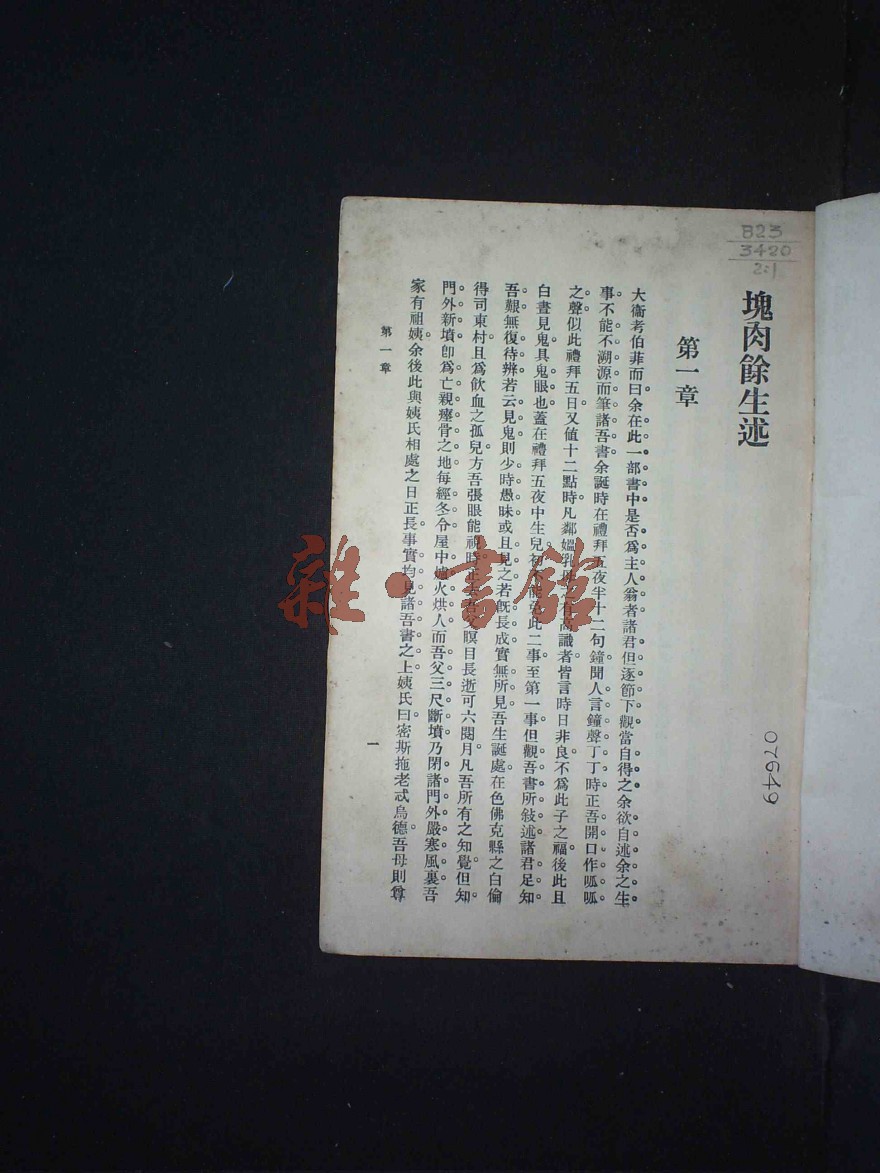 B23
3420
2:1
塊肉餘生述
07649
第一章
大衞考伯菲而曰余在此一部書中是否爲主人翁者諸君但逐節下觀當自得之余欲自述余之生
事不能不溯源而筆諸吾書余誕時在禮拜五夜半十二句鐘聞人言鐘聲丁丁時正吾開口作呱呱
之聲似此禮拜五日又値十二點時凡鄰媼乳母之有高識者皆言時日非良不爲此子之福後此且
白晝見鬼具鬼眼也蓋在禮拜五夜中生兒初不能免此二事至第一事但觀吾書所敍述諸君足知
吾艱無復待辨若云見鬼則少時愚昧或且見之若旣長成實無所見吾生誕處在色佛克縣之白倫
得司東村且爲飮血之孤兒方吾張眼能視時正去吾父瞑目長逝可六閱月凡吾所有之知覺但知
門外新墳卽爲亡親瘞骨之地每經冬令屋中爐火烘人而吾父三尺斷墳乃閉諸門外嚴寒風裏吾
家有祖姨余後此與姨氏相處之日正長事實均見諸吾書之上姨氏曰密斯拖老忒烏德吾母則尊
第一章
一
雜·書館